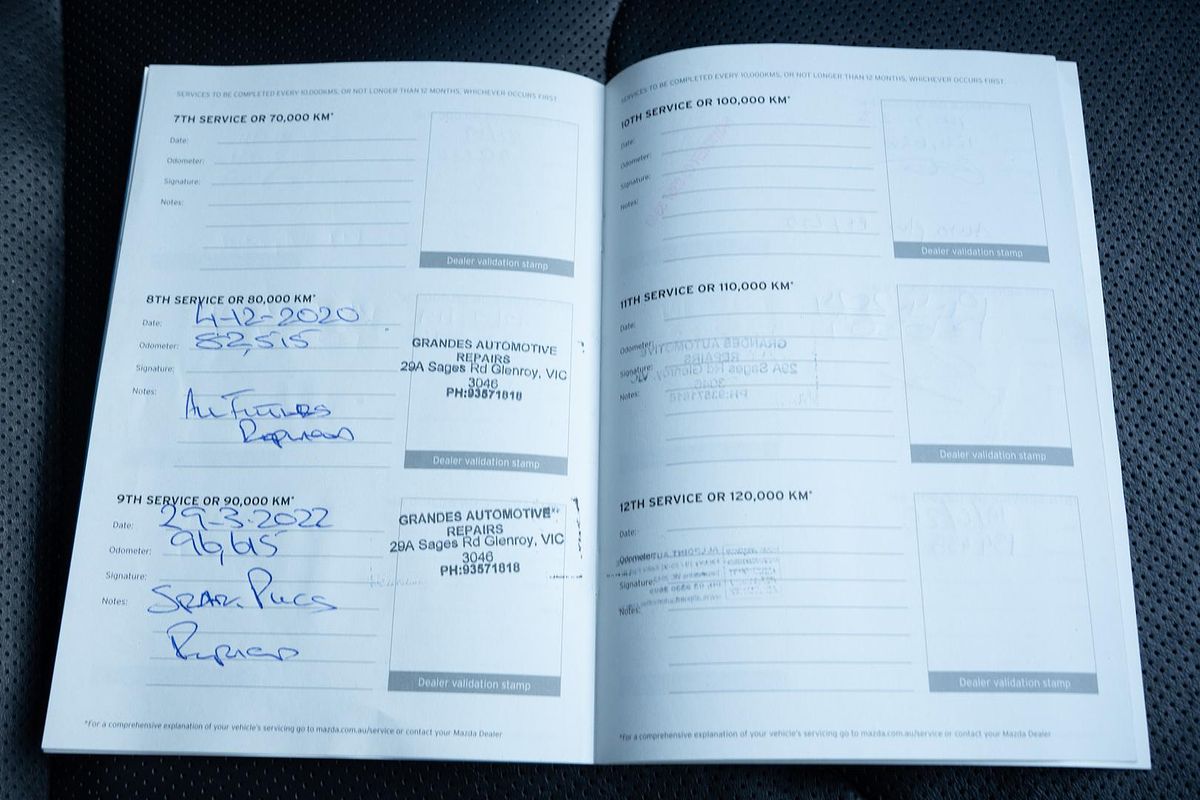 SERVICES TO BE COMPLETED EVERY 10,000KMS, OR NOT LONGER THAN 12 MONTHS, WHICHEVER OCCURS FIRST.
7TH SERVICE OR 70,000 KM*
Date:
Odometer:
Signature:
Notes:
Dealer validation stamp
8TH SERVICE OR 80,000 KM*
Date: 4-12-2020
Odometer: 82,515
Signature:
Notes: All Filters
Replaced
GRANDES AUTOMOTIVE
REPAIRS
29A Sages Rd Glenroy, VIC
3046
PH:93571818
Dealer validation stamp
9TH SERVICE OR 90,000 KM*
Date: 29-3-2022
Odometer: 96,615
Signature:
Notes: Spark Plugs
Replaced
GRANDES AUTOMOTIVE
REPAIRS
29A Sages Rd Glenroy, VIC
3046
PH:93571818
Dealer validation stamp
*For a comprehensive explanation of your vehicle's servicing go to mazda.com.au/service or contact your Mazda Dealer
SERVICES TO BE COMPLETED EVERY 10,000KMS, OR NOT LONGER THAN 12 MONTHS, WHICHEVER OCCURS FIRST.
10TH SERVICE OR 100,000 KM*
Date:
Odometer:
Signature:
Notes:
Dealer validation stamp
11TH SERVICE OR 110,000 KM*
Date:
Odometer:
Signature:
Notes:
Dealer validation stamp
12TH SERVICE OR 120,000 KM*
Date:
Odometer:
Signature:
Notes:
Dealer validation stamp
*For a comprehensive explanation of your vehicle's servicing go to mazda.com.au/service or contact your Mazda Dealer